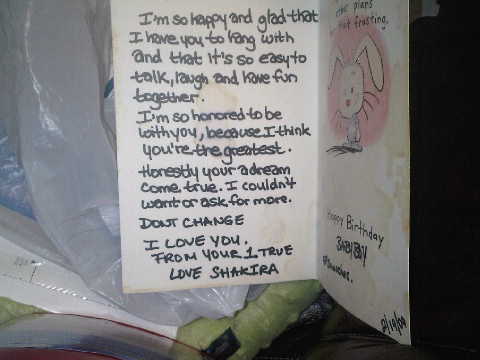 I'm so happy and glad that
I have you to hang with
and that it's so easy to
talk, laugh and have fun
together.
I'm so honored to be
with you, because I think
you're the greatest.
Honestly your a dream
come true. I couldn't
want or ask for more.
DONT CHANGE
I LOVE YOU.
FROM YOUR 1 TRUE
LOVE SHAKIRA
plans
frosting.
Happy Birthday